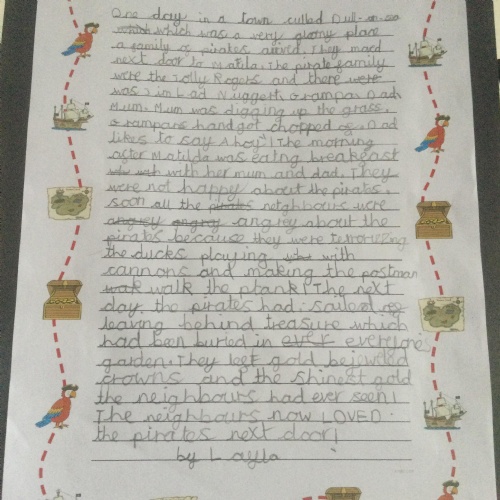 One day in a town culled Dull-on-sea
which which was a very gloomy place
a family of pirates arived. They moed
next dor to Matila. The pirate family
were the Jolly Rogers and there were
was Jim Lad, Nuggett, Grampa, Dad,
Mum. Mum was digging up the grass.
Grampars hand got chopped of. Dad
likes to say Ahoy"! The morning
after Matilda was eating breakfast
with with her mum and dad. They
were not happy about the pirates.
soon all the pirates neighbours were
angrey angrey angrey about the
pirates because they were terrorizing
the ducks playing with
cannons and making the postman
walk walk the plank! The next
day the pirates had sailed of
leaving behind treasure which
had been buried in ever everyones
garden. They left gold bejeweled
crowns and the shinest gold
the neighbours had ever seen!
The neighbours now LOVED
the pirates next door!
by Layla